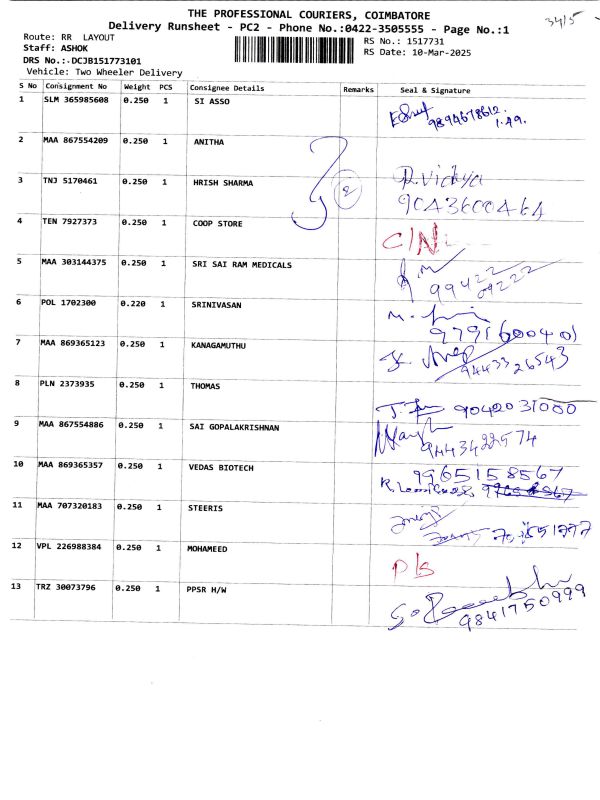 THE PROFESSIONAL COURIERS, COIMBATORE
34/5
Delivery Runsheet - PC2 - Phone No.:0422-3505555 - Page No.:1
Route: RR LAYOUT
RS No.: 1517731
Staff: ASHOK
RS Date: 10-Mar-2025
DRS No.:-DCJB151773101
Vehicle: Two Wheeler Delivery
S No Consignment No Weight PCS Consignee Details Remarks Seal & Signature
1 SLM 365985608 0.250 1 SI ASSO
9894678612.
2 MAA 867554209 0.250 1 ANITHA
3 TNJ 5170461 0.250 1 HRISH SHARMA 2 R.Vidya
9043600461
4 TEN 7927373 0.250 1 COOP STORE C/N
5 MAA 303144375 0.250 1 SRI SAI RAM MEDICALS
99422
09222
6 POL 1702300 0.220 1 SRINIVASAN
9791600401
7 MAA 869365123 0.250 1 KANAGAMUTHU
9443326543
8 PLN 2373935 0.250 1 THOMAS
9042031000
9 MAA 867554886 0.250 1 SAI GOPALAKRISHNAN
9443422574
10 MAA 869365357 0.250 1 VEDAS BIOTECH 9965158567
11 MAA 707320183 0.250 1 STEERIS
12 VPL 226988384 0.250 1 MOHAMEED D/S
13 TRZ 30073796 0.250 1 PPSR H/W
9841750999